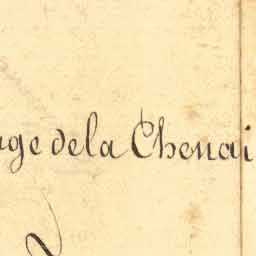 age de la Chenai